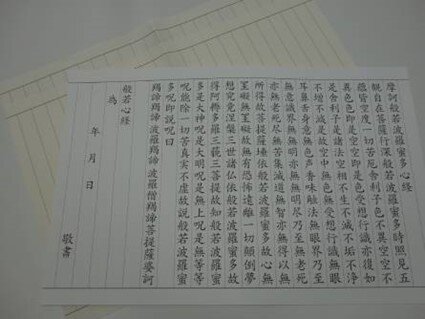 摩訶般若波羅蜜多心経
観自在菩薩行深般若波羅蜜多時照見五
蘊皆空度一切苦厄舎利子色不異空空不
異色色即是空空即是色受想行識亦復如
是舎利子是諸法空相不生不滅不垢不浄
不増不減是故空中無色無受想行識無眼
耳鼻舌身意無色声香味触法無眼界乃至
無意識界無無明亦無無明尽乃至無老死
亦無老死尽無苦集滅道無智亦無得以無
所得故菩提薩埵依般若波羅蜜多故心無
罣礙無罣礙故無有恐怖遠離一切顛倒夢
想究竟涅槃三世諸仏依般若波羅蜜多故
得阿耨多羅三藐三菩提故知般若波羅蜜
多是大神呪是大明呪是無上呪是無等等
呪能除一切苦真実不虚故説般若波羅蜜
多呪即説呪曰
羯諦羯諦波羅羯諦波羅僧羯諦菩提薩婆訶
般若心経
為
年 月 日
敬書